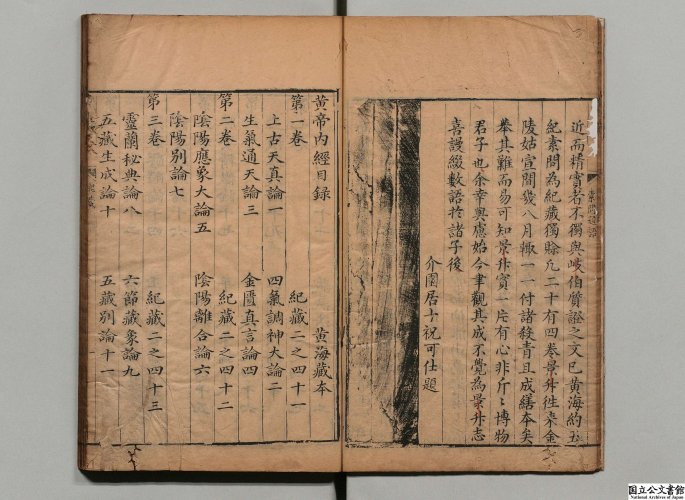 近而精實者不獨與岐伯質證之文已黄海約五
紀素問為紀藏獨賒凡二十有四卷景升徃来金
陵姑宣間幾八月輙一一付諸殺青且成繕本矣
舉其難而易可知景升實一片有心非斤〻博物
君子也余幸與應始今聿觀其成不覺為景升志
喜謾綴數語於諸子後
介園居士祝可仕題
黄帝内經目録
黄海藏本
第一卷
紀藏二之四十一
上古天真論一
四氣調神大論二
生氣通天論三
金匱真言論四
第二卷
紀藏二之四十二
陰陽應象大論五
陰陽離合論六
陰陽别論七
第三卷
紀藏二之四十三
靈蘭秘典論八
六節藏象論九
五藏生成論十
五藏别論十一
国立公文書館
National Archives of Japan